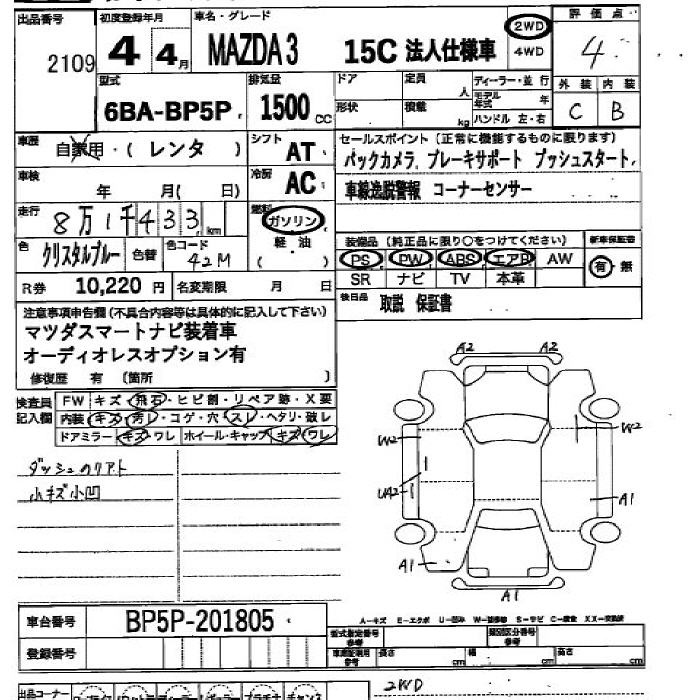 出品番号 初度登録年月 車名・グレード 2WD 評価点
2109 4 4月 MAZDA3 15C 法人仕様車 4WD 4
型式 排気量 ドア 定員 ディーラー・並行 外装 内装
6BA-BP5P 1500cc 人 モデル年式 年 C B
形状 積載 kg ハンドル 左・右
車歴 自家用・( レンタ ) シフト AT セールスポイント (正常に機能するものに限ります)
バックカメラ、ブレーキサポート プッシュスタート、
車検 年 月( 日) 冷房 AC 車線逸脱警報 コーナーセンサー
走行 8万1千433km 燃料 ガソリン
軽・油
( )
色 クリスタルブルー 色替 色コード 42M
装備品 (純正品に限り○をつけてください) 新車保証書
PS PW ABS エアB AW 有・無
SR ナビ TV 本革
R券 10,220円 名変期限 月 日 後日品 取説 保証書
注意事項申告欄(不具合内容等は具体的に記入して下さい)
マツダスマートナビ装着車
オーディオレスオプション有
修復歴 有 〔箇所 〕
検査員記入欄 FW キズ・飛石・ヒビ割・リペア跡・X要
内装 キズ・汚レ・コゲ・穴・スレ・ヘタリ・破レ
ドアミラー キズ・ワレ ホイール・キャップ キズ・ワレ
小キズ小凹
A2 A2
W2 W2
UA2 A1
A1
A1
車台番号 BP5P-201805
A-キズ E-エクボ U-凹み
登録番号 型式指定番号 参考 類別区分番号 参考
参考 長さ cm 幅 cm 高さ cm
出品コーナー 2WD